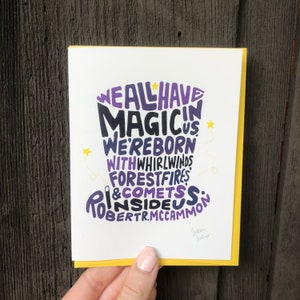 WE ALL HAVE
MAGIC IN
US
WE'RE BORN
WITH WHIRLWINDS
FOREST FIRES
& COMETS
INSIDE US.
ROBERT R. MCCAMMON